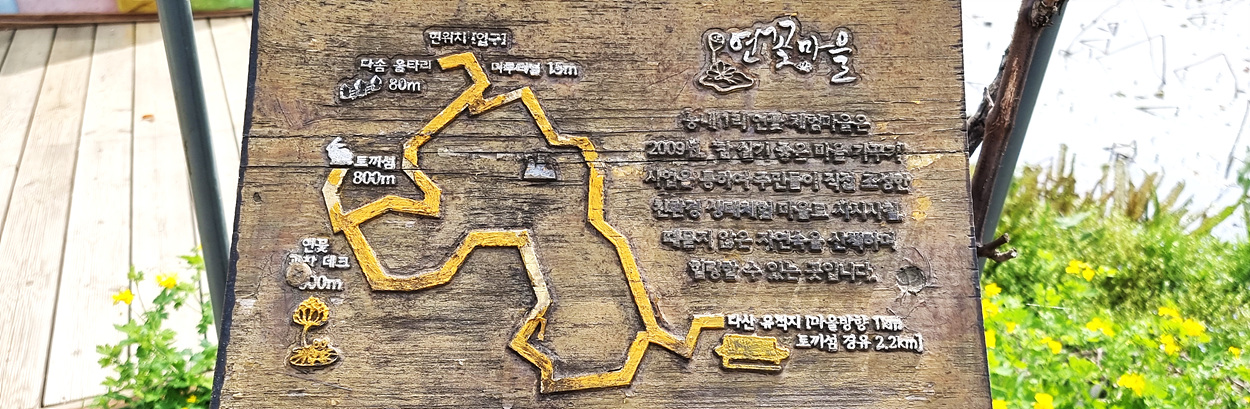 현위치 [입구]
다솜 울타리
80m
15m
토끼섬
800m
연꽃
데크
연꽃마을
연꽃 체험마을은
2009년 참 살기 좋은 마을 가꾸기
사업을 통하여 주민들이 직접 조성한
친환경 생태체험 마을로 사시사철
때묻지 않은 자연속을 산책하며
힐링할 수 있는 곳입니다.
다산 유적지 [마을방향 1km
토끼섬 경유 2.2km]